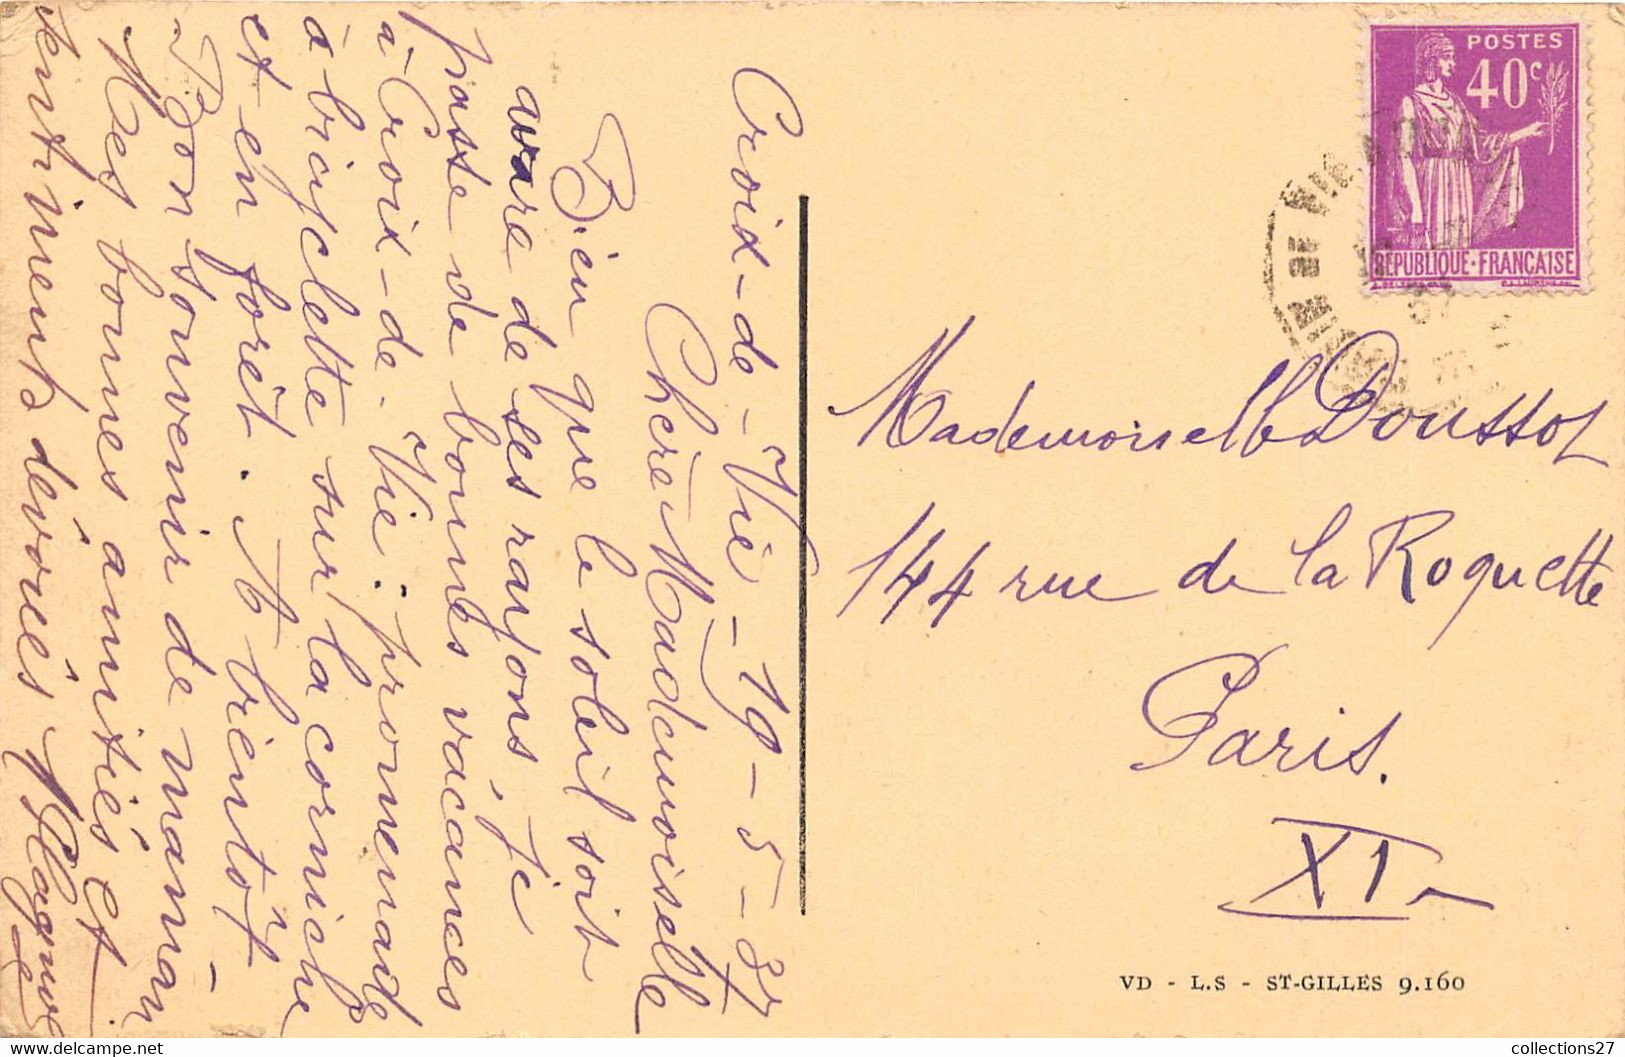 Croix-de-Vie-19-5-37
Chère Mademoiselle
Bien que le soleil soit
avare de ses rayons, je
passe de bonnes vacances
à Croix-de-Vie: promenade
à bicyclette sur la corniche
et en forêt. A bientôt
Bon souvenir de maman
Mes bonnes amitiés et
sentiments dévoués
POSTES
40c
RÉPUBLIQUE·FRANÇAISE
Mademoiselle Doussot
144 rue de la Roquette
Paris.
XI
VD - L.S - ST-GILLES 9.160
collections27